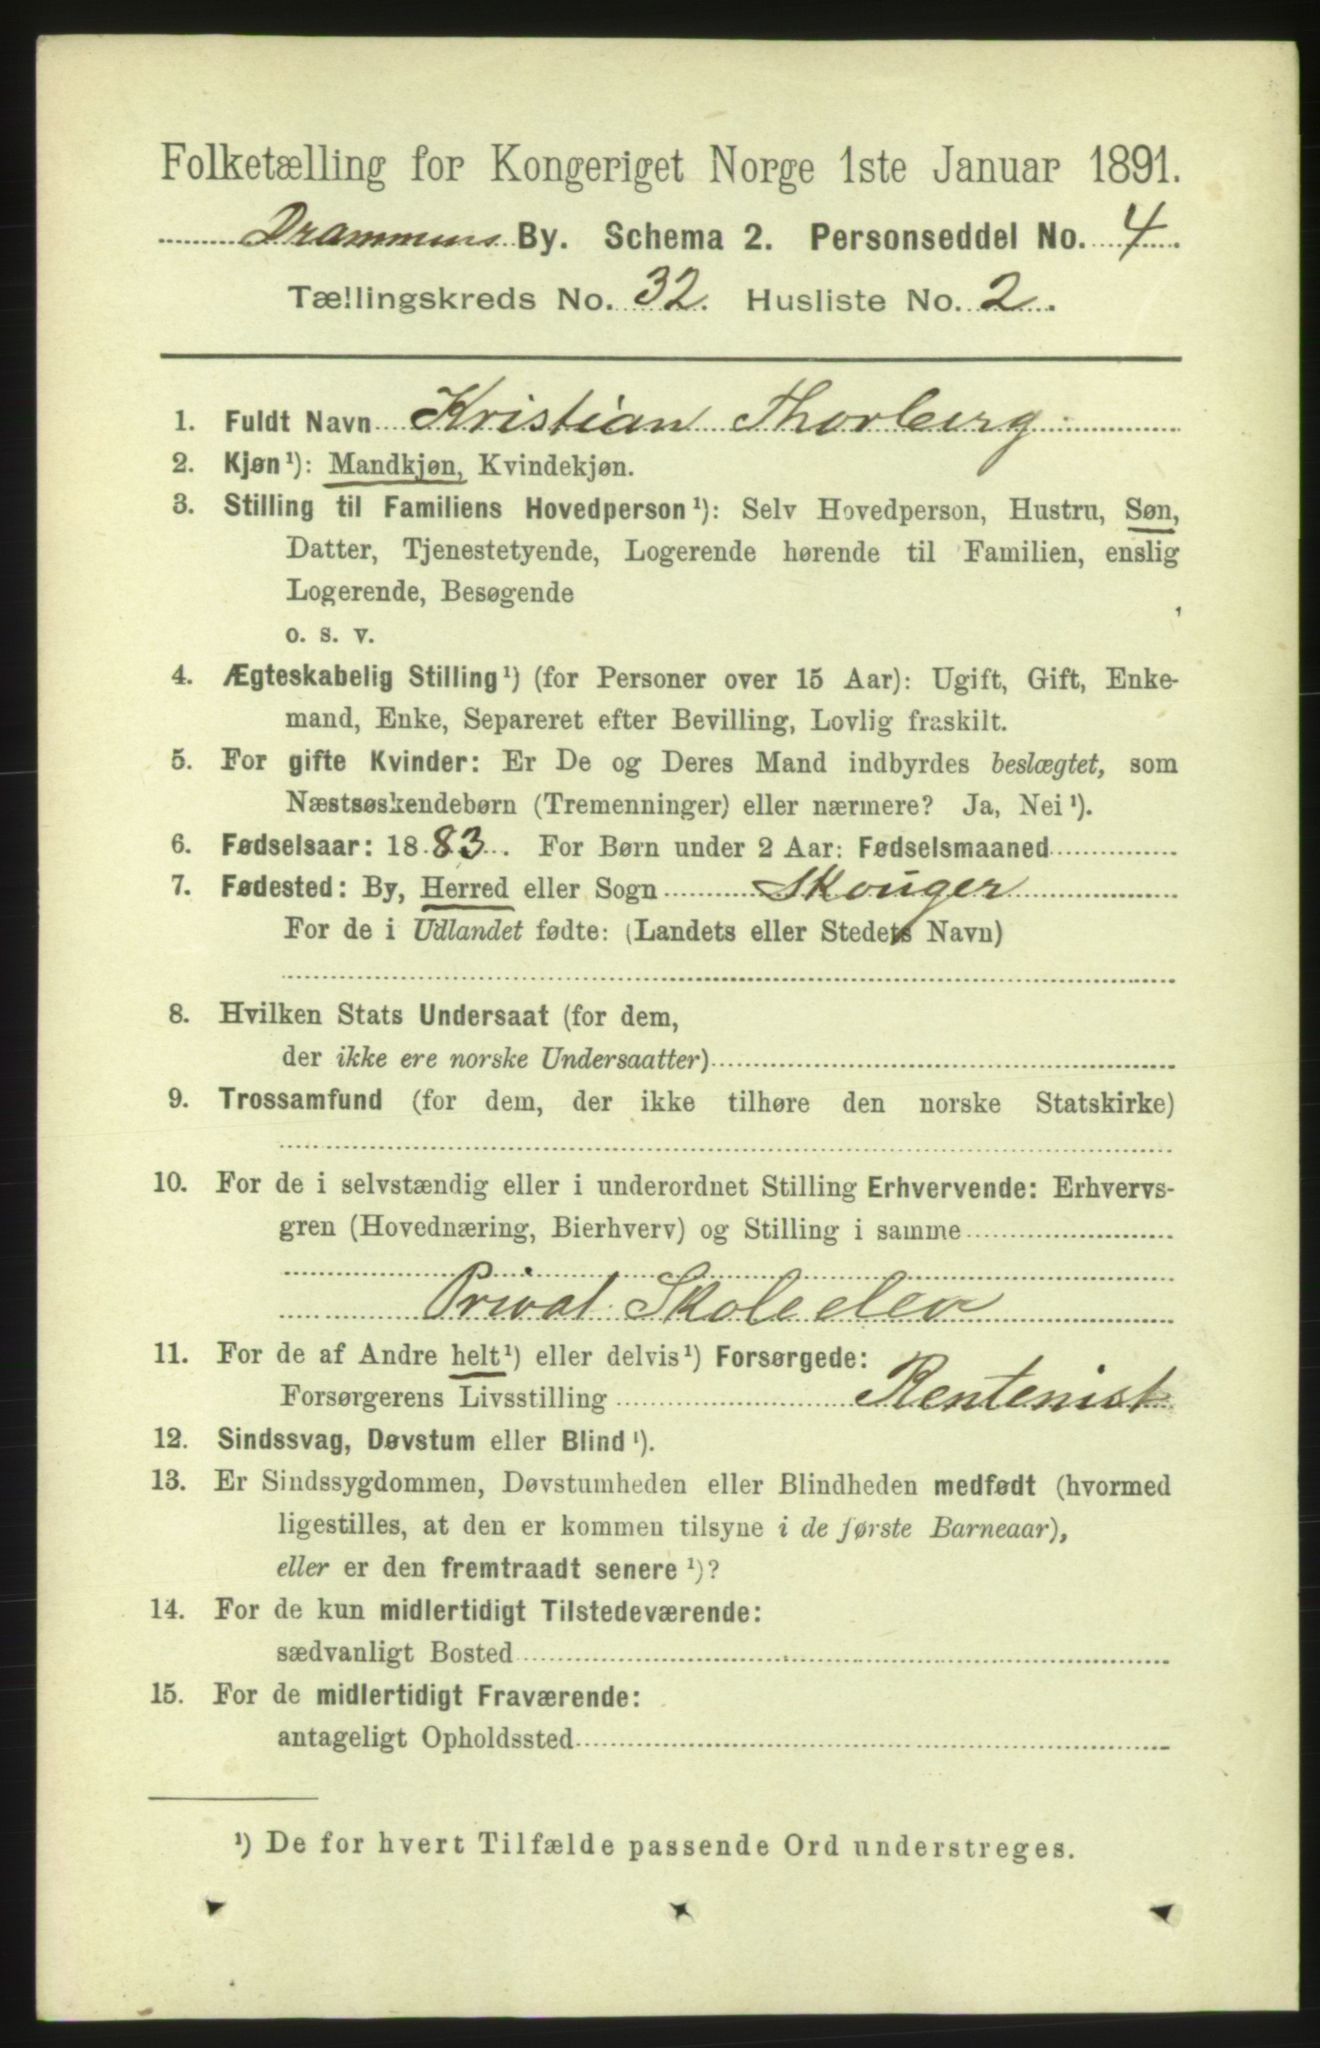 Folketælling for Kongeriget Norge 1ste Januar 1891.
Drammens By. Schema 2. Personseddel No. 4.
Tællingskreds No. 32. Husliste No. 2.
1. Fuldt Navn Kristian Thorberg
2. Kjøn¹): Mandkjøn, Kvindekjøn.
3. Stilling til Familiens Hovedperson¹): Selv Hovedperson, Hustru, Søn,
Datter, Tjenestetyende, Logerende hørende til Familien, enslig
Logerende, Besøgende
o. s. v.
4. Ægteskabelig Stilling¹) (for Personer over 15 Aar): Ugift, Gift, Enke-
mand, Enke, Separeret efter Bevilling, Lovlig fraskilt.
5. For gifte Kvinder: Er De og Deres Mand indbyrdes beslægtet, som
Næstsøskendebørn (Tremenninger) eller nærmere? Ja, Nei¹).
6. Fødselsaar: 1883. For Børn under 2 Aar: Fødselsmaaned
7. Fødested: By, Herred eller Sogn Skouger
For de i Udlandet fødte: (Landets eller Stedets Navn)
8. Hvilken Stats Undersaat (for dem,
der ikke ere norske Undersaatter)
9. Trossamfund (for dem, der ikke tilhøre den norske Statskirke)
10. For de i selvstændig eller i underordnet Stilling Erhvervende: Erhvervs-
gren (Hovednæring, Bierhverv) og Stilling i samme
Privat Skoleelev
11. For de af Andre helt¹) eller delvis¹) Forsørgede:
Forsørgerens Livsstilling Rentenist
12. Sindssvag, Døvstum eller Blind¹).
13. Er Sindssygdommen, Døvstumheden eller Blindheden medfødt (hvormed
ligestilles, at den er kommen tilsyne i de første Barneaar),
eller er den fremtraadt senere¹)?
14. For de kun midlertidigt Tilstedeværende:
sædvanligt Bosted
15. For de midlertidigt Fraværende:
antageligt Opholdssted
¹) De for hvert Tilfælde passende Ord understreges.